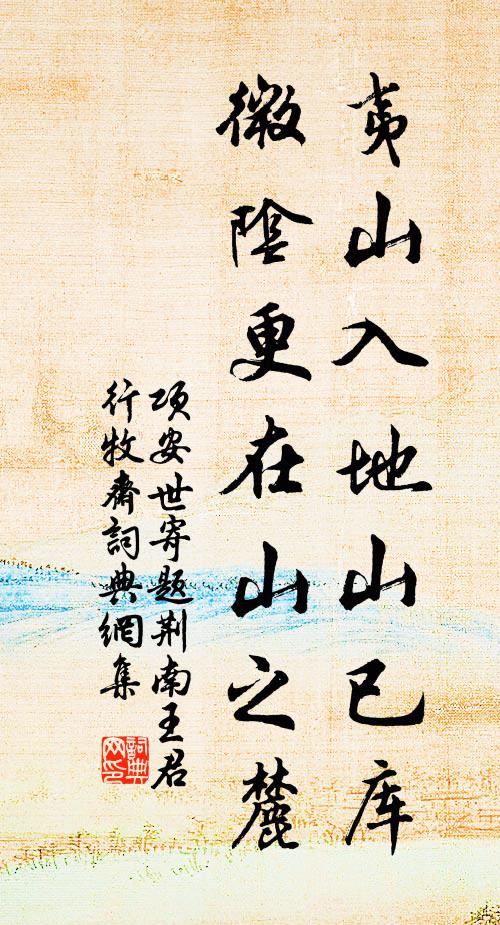 夷山入地山已库
微陰更在山之麓
項安世寄題荆南王君
行牧齋詞典網集
詞典网印